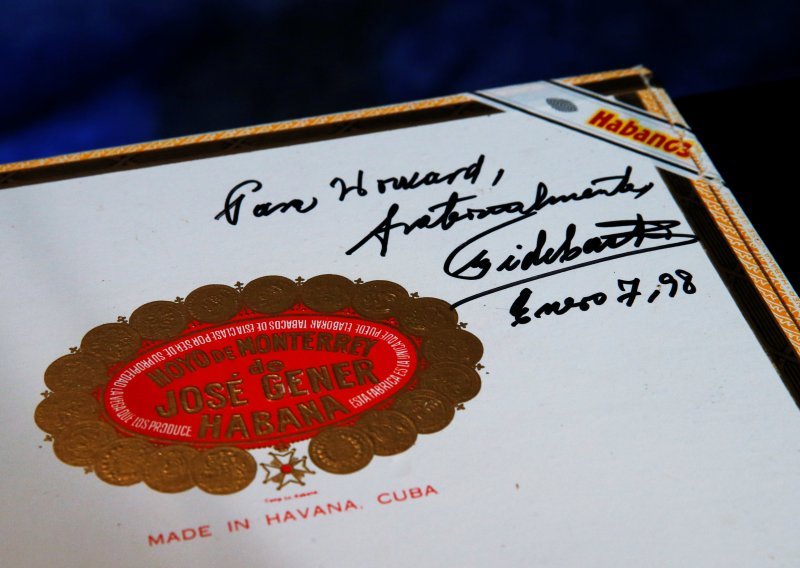 Habanos
Para Howard,
Fraternalmente,
Fidel Castro
Enero 7, 98
ESTA FABRICA ES LA UNICA QUE PUEDE ELABORAR TABACOS DE ESTA CLASE POR SER DE SU PROPIEDAD LA VEGA QUE LOS PRODUCE
HOYO DE MONTERREY
de
JOSÉ GENER
HABANA
MADE IN HAVANA, CUBA